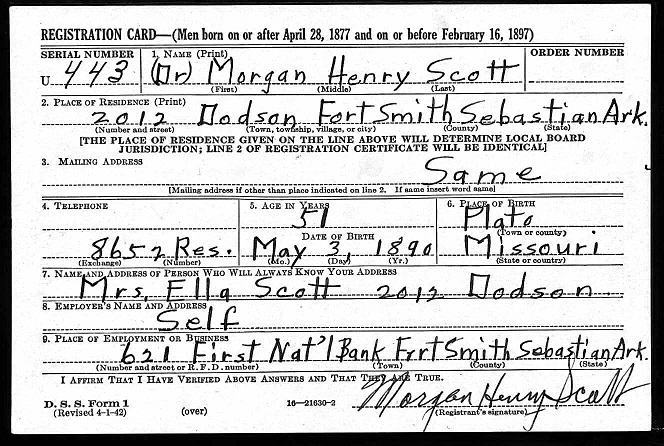 REGISTRATION CARD—(Men born on or after April 28, 1877 and on or before February 16, 1897)
SERIAL NUMBER 1. NAME (Print) ORDER NUMBER
U 443 (Dr) Morgan Henry Scott
(First) (Middle) (Last)
2. PLACE OF RESIDENCE (Print)
2012 Dodson Fort Smith Sebastian Ark.
(Number and street) (Town, township, village, or city) (County) (State)
[THE PLACE OF RESIDENCE GIVEN ON THE LINE ABOVE WILL DETERMINE LOCAL BOARD
JURISDICTION; LINE 2 OF REGISTRATION CERTIFICATE WILL BE IDENTICAL]
3. MAILING ADDRESS
Same
[Mailing address if other than place indicated on line 2. If same insert word same]
4. TELEPHONE 5. AGE IN YEARS 6. PLACE OF BIRTH
51 Plato
DATE OF BIRTH (Town or county)
8652 Res. May 3, 1890 Missouri
(Exchange) (Number) (Mo.) (Day) (Yr.) (State or country)
7. NAME AND ADDRESS OF PERSON WHO WILL ALWAYS KNOW YOUR ADDRESS
Mrs. Ella Scott 2012 Dodson
8. EMPLOYER'S NAME AND ADDRESS
Self
9. PLACE OF EMPLOYMENT OR BUSINESS
621 First Nat'l Bank Fort Smith Sebastian Ark.
(Number and street or R. F. D. number) (Town) (County) (State)
I AFFIRM THAT I HAVE VERIFIED ABOVE ANSWERS AND THAT THEY ARE TRUE.
Morgan Henry Scott
D. S. S. Form 1
(Revised 4-1-42) (over) 16—21630-2 (Registrant's signature)